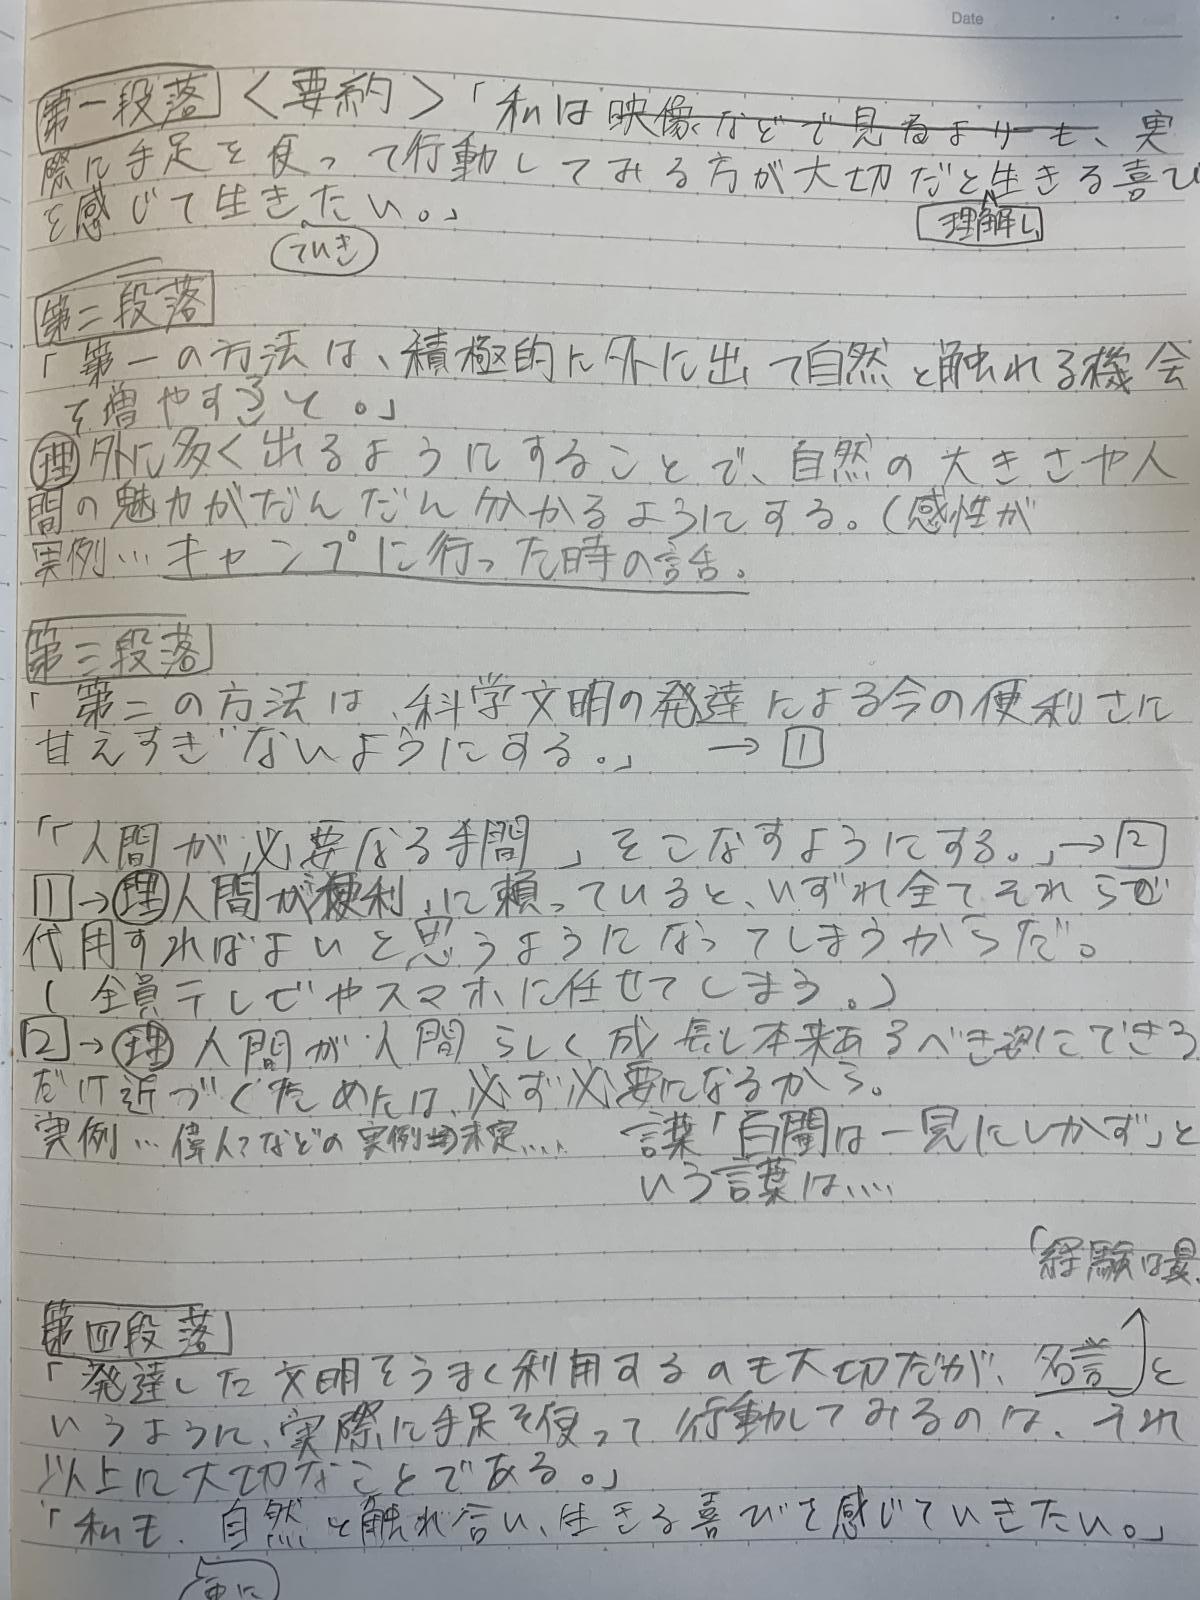 Date
第一段落 〈要約〉「私は映像などで見るよりも、実
際に手足を使って行動してみる方が大切だと生きる喜び
を感じて生きたい。」
理解し
ていき
第二段落
「第一の方法は、積極的に外に出て自然と触れる機会
を増やすこと。」
理 外に多く出るようにすることで、自然の大きさや人
間の魅力がだんだん分かるようにする。(感性が
実例…キャンプに行った時の話。
第三段落
「第二の方法は、科学文明の発達による今の便利さに
甘えすぎないようにする。」 → 1
「「人間が必要なる手間」をこなすようにする。」→ 2
1 → 理 人間が「便利」に頼っていると、いずれ全てそれらで
代用すればよいと思うようになってしまうからだ。
(全員テレビやスマホに任せてしまう。)
2 → 理 人間が人間らしく成長し本来あるべき姿にできる
だけ近づくためには、必ず必要になるから。
実例…偉人?などの実例 未定…. 言葉「百聞は一見にしかず」と
いう言葉は….
「経験は最
第四段落
「発達した文明をうまく利用するのも大切だが、名言と
いうように、実際に手足を使って行動してみるのは、それ
以上に大切なことである。」
「私も、自然と触れ合い、生きる喜びを感じていきたい。」
更に